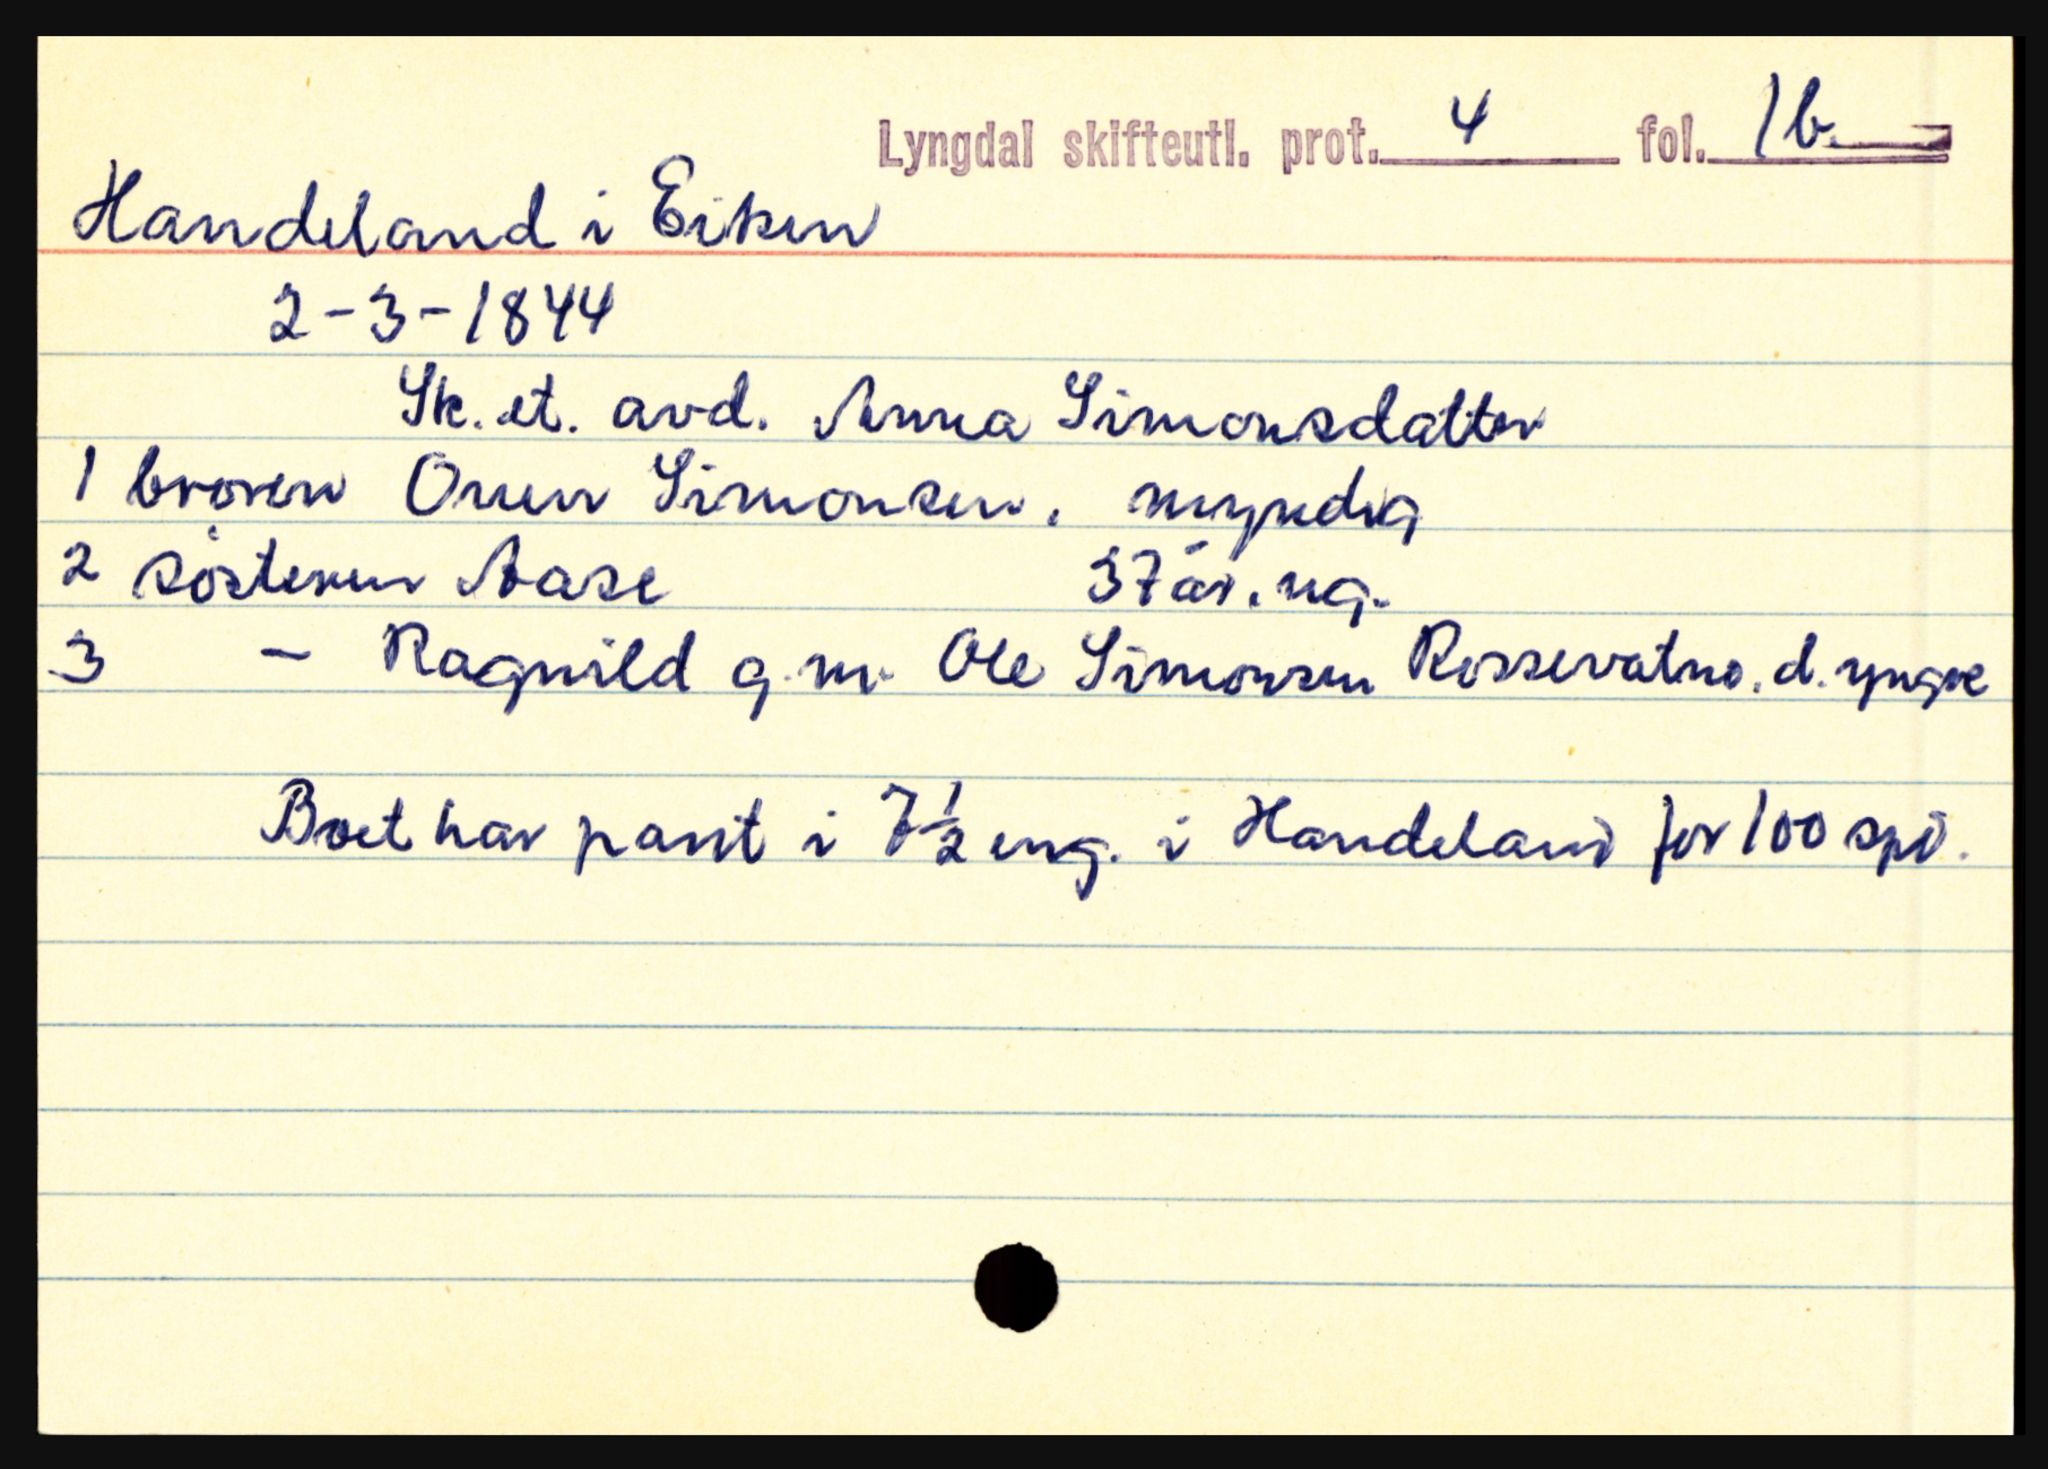 Lyngdal skifteutl. prot. 4 fol. 1b.
Handeland i Eiken
2-3-1844
Sk. et. avd. Anna Simonsdatter
1 broren Onen Simonsen. myndig
2 søsteren Aase 37 år. ug.
3 - Ragnild g.m. Ole Simonsen Rossevatne. d. yngre
Boet har pant i 7½ eng. i Handeland for 100 spd.